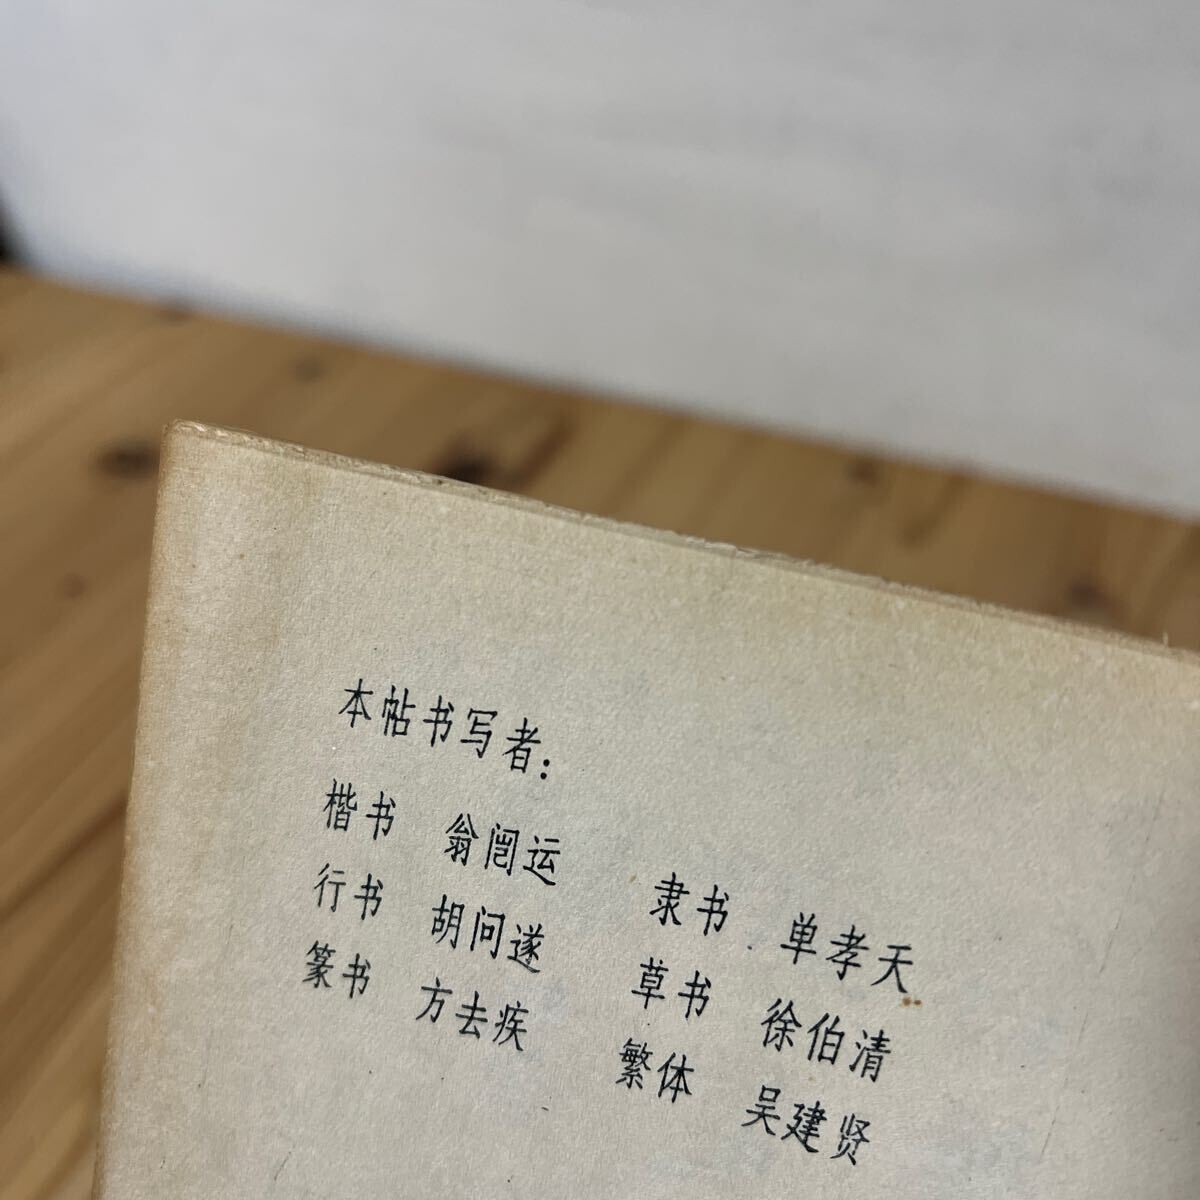 本帖书写者：
楷书 翁闿运 隶书 单孝天
行书 胡问遂 草书 徐伯清
篆书 方去疾 繁体 吴建贤